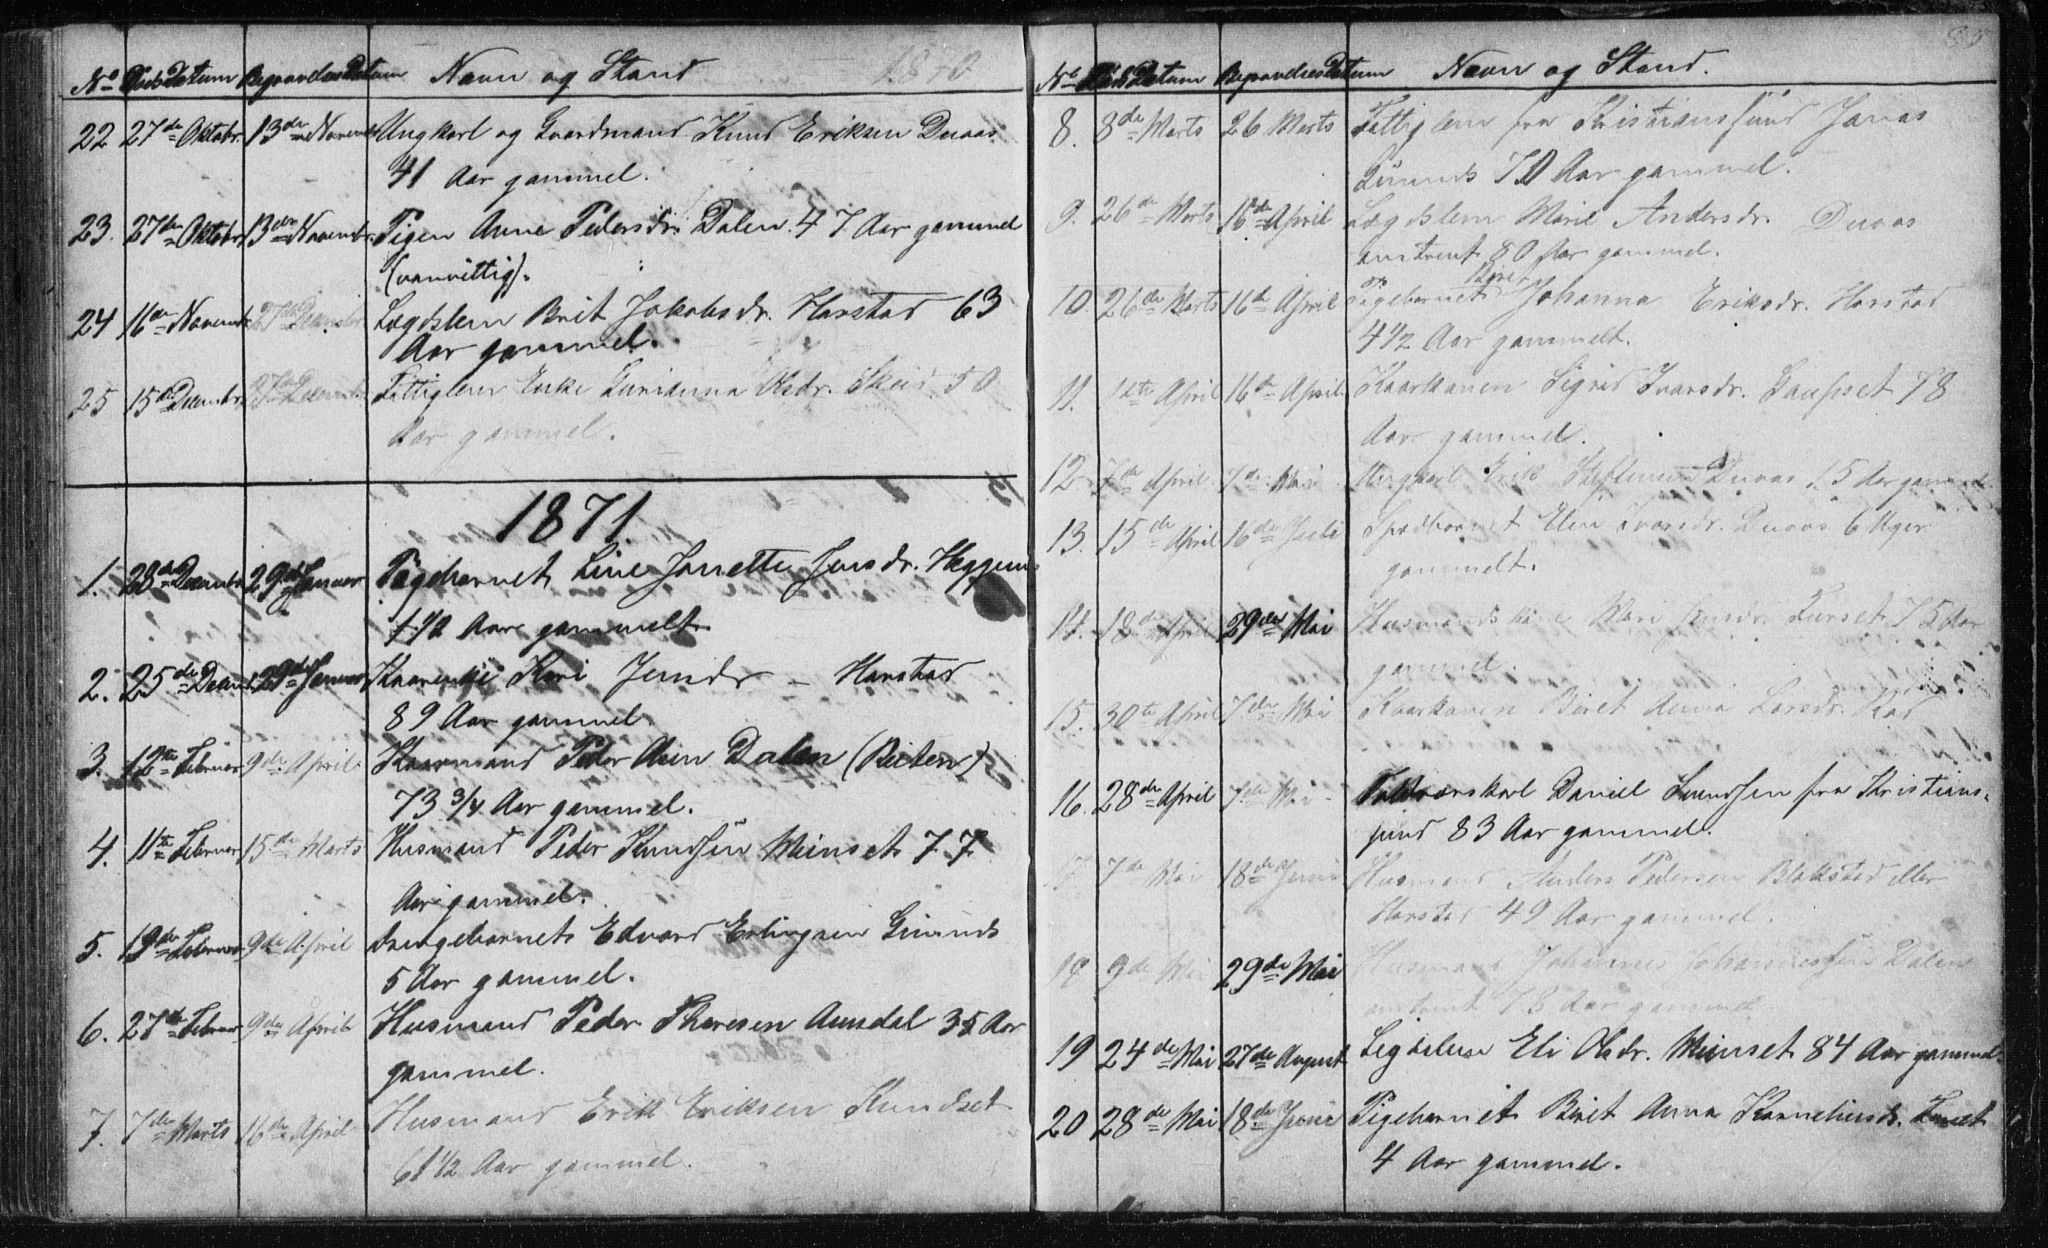 No DødsDatum BegravelsesDatum Navn og Stand 1870
22 27de Oktobr. 13de Novembr Ungkarl og Gaardmand Knud Eriksen Duaas
41 Aar gammel.
23. 27de Oktobr 13de Novembr. Pigen Anne Pedersdr. Dalen 47 Aar gammel
(vanvittig).
24 16de Novembr 27de Decembr Lægdslem Brit Jakobsdr. Harstad 63
Aar gammel.
25 15de Decembr. 27de Decembr Fattiglem Enke Olsdr. Skei 50
Aar gammel.
1871.
1. 28de Decembr 29de Januar Pigebarnet Line Janette Jensdr. Heggem
1 1/2 Aar gammelt.
2. 25de Decembr 29de Januar Kaarenke Kari Jensdr – Harstad
89 Aar gammel.
3. 12te Februar 9de April Kaarmand Peder Dalen
73 3/4 Aar gammel.
4. 11te Februar 15de Marts Husmand Peder Knudsen Meinset 77
Aar gammel.
5. 19de Februar 9de April Drengebarnet Edvard Erlingsen
5 Aar gammel.
6. 27de Februar 9de April Husmand Peder Aunsdal 35 Aar
gammel.
7. 7de Marts 16de April Husmand Erik Eriksen Kundset
61 1/2 Aar gammel.
85
No DødsDatum BegravelsesDatum Navn og Stand.
8. 8de Marts 26 Marts Fattiglem fra Kristianssund Jonas
70 Aar gammel.
9. 26de Marts 16de April Lægdslem Marit Andersdr. Duaas
omtrent 80 Aar gammel.
10. 26de Marts 16de April Pigebarnet Johanna Eriksdr. Harstad
4 1/2 Aar gammelt.
11. April 16de April. Kaarkonen Sigrid Ivarsdr. 78
Aar gammel.
12 7de April 7de Mai Ungkarl Erik Duaas 15 Aar gammel
13. 15de April 16de Juli Spædbarnet Elen Ivarsdr. Duaas 6 Uger
gammelt.
14. 18de April 29de Mai Husmandskone Mari Jensdr. 75 Aar
gammel.
15. 30te April 7de Mai Kaarkonen Beret Anna Larsdr.
16. 28de April 7de Mai Daniel fra Kristian-
sund 83 Aar gammel.
17. 7de Mai 18de Juni Husmand Anders Pedersen Blakstad eller
Harstad 49 Aar gammel.
18 9de Mai 29de Mai Husmand Johannes Johannessen Dalen
omtrent 78 Aar gammel
19 24de Mai 27de August Eli Olsdr. Meinset 84 Aar gammel
20 28de Mai 18de Juni Pigebarnet Beret Anna
4 Aar gammel.